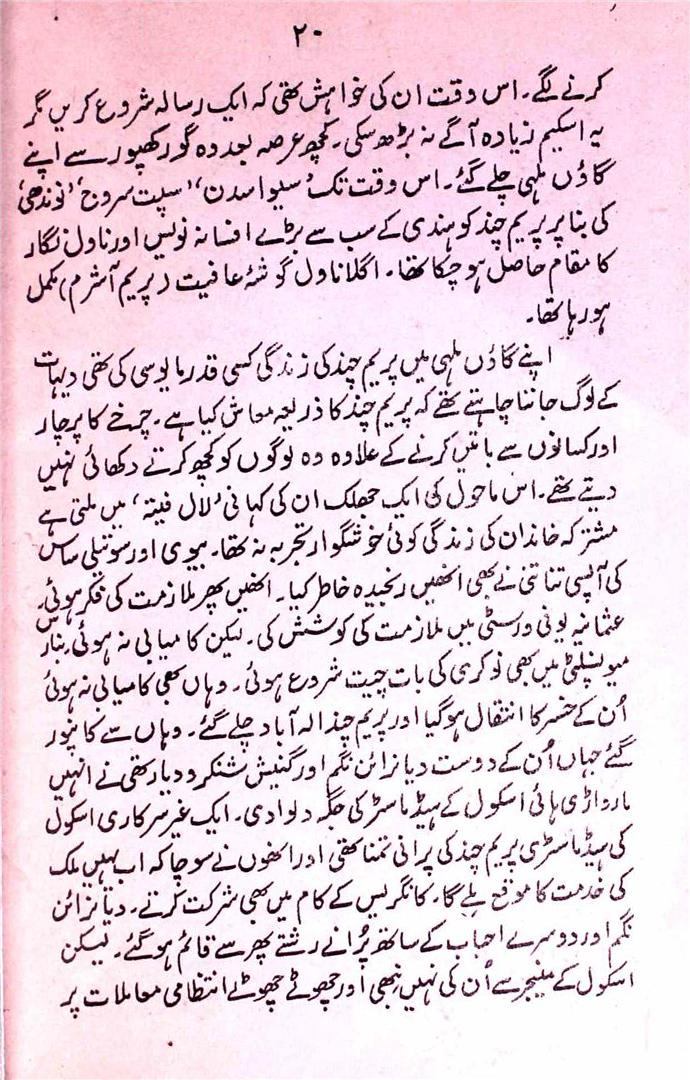 ۲۰
کرنے لگے۔ اس وقت ان کی خواہش تھی کہ ایک رسالہ شروع کریں مگر
یہ اسکیم زیادہ آگے نہ بڑھ سکی۔ کچھ عرصہ بعد وہ گورکھپور سے اپنے
گاؤں لمہی چلے گئے۔ اس وقت تک ’سیوا سدن‘ ’سپت سروج‘ ’نوندھی‘
کی بنا پر پریم چند کو ہندی کے سب سے بڑے افسانہ نویس اور ناول نگار
کا مقام حاصل ہو چکا تھا۔ اگلا ناول گوشۂ عافیت (پریم آشرم) مکمل
ہو رہا تھا۔
اپنے گاؤں لمہی میں پریم چند کی زندگی کسی قدر مایوسی کی تھی دیہات
کے لوگ جاننا چاہتے تھے کہ پریم چند کا ذریعہ معاش کیا ہے۔ چرخے کا پرچار
اور کسانوں سے باتیں کرنے کے علاوہ وہ لوگوں کو کچھ کرتے دکھائی نہیں
دیتے تھے۔ اس ماحول کی ایک جھلک ان کی کہانی ’لال فیتہ‘ میں ملتی ہے
مشترکہ خاندان کی زندگی کوئی خوشگوار تجربہ نہ تھا۔ بیوی اور سوتیلی ساس
کی آپسی تنا تنی نے بھی انھیں رنجیدہ خاطر کیا۔ انھیں پھر ملازمت کی فکر ہوئی۔
عثمانیہ یونی ورسٹی میں ملازمت کی کوشش کی۔ لیکن کامیابی نہ ہوئی۔ بنارس
میونسپلٹی میں بھی نوکری کی بات چیت شروع ہوئی۔ وہاں بھی کامیابی نہ ہوئی
اُن کے خسر کا انتقال ہو گیا اور پریم چند الہ آباد چلے گئے۔ وہاں سے کانپور
گئے جہاں اُن کے دوست دیا نرائن نگم اور گنیش شنکر ودیارتھی نے انہیں
مارواڑی ہائی اسکول کے ہیڈ ماسٹر کی جگہ دلوا دی۔ ایک غیر سرکاری اسکول
کی ہیڈ ماسٹری پریم چند کی پرانی تمنا تھی اور انھوں نے سوچا کہ اب یہیں ملک
کی خدمت کا موقع ملے گا۔ کانگریس کے کام میں بھی شرکت کرتے۔ دیا نرائن
نگم اور دوسرے احباب کے ساتھ پُرانے رشتے پھر سے قائم ہو گئے۔ لیکن
اسکول کے منیجر سے اُن کی نہیں نبھی اور چھوٹے چھوٹے انتظامی معاملات پر